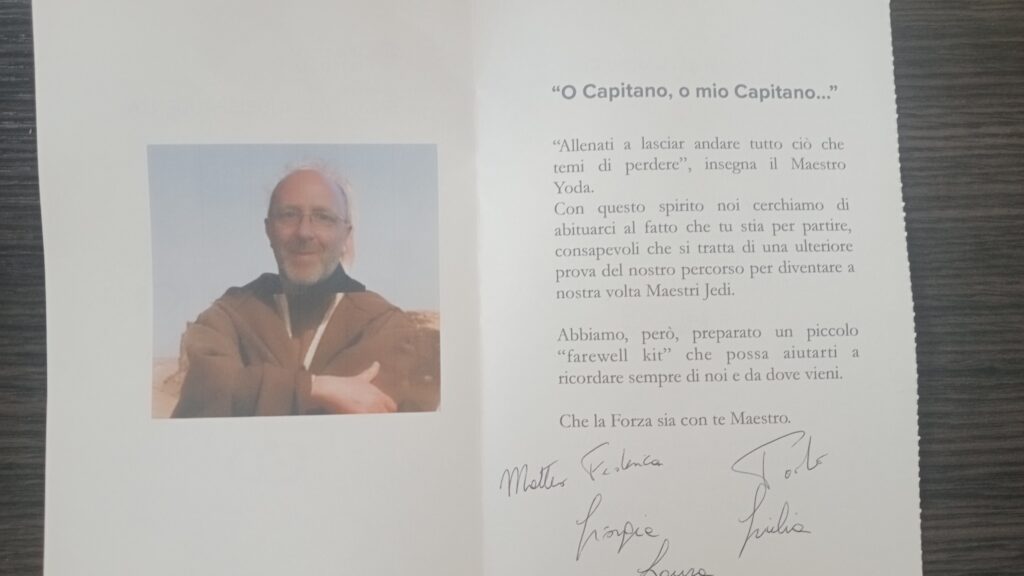 “O Capitano, o mio Capitano...”
“Allenati a lasciar andare tutto ciò che
temi di perdere”, insegna il Maestro
Yoda.
Con questo spirito noi cerchiamo di
abituarci al fatto che tu stia per partire,
consapevoli che si tratta di una ulteriore
prova del nostro percorso per diventare a
nostra volta Maestri Jedi.
Abbiamo, però, preparato un piccolo
“farewell kit” che possa aiutarti a
ricordare sempre di noi e da dove vieni.
Che la Forza sia con te Maestro.
Matteo Federica
Giorgia Giulia
Laura